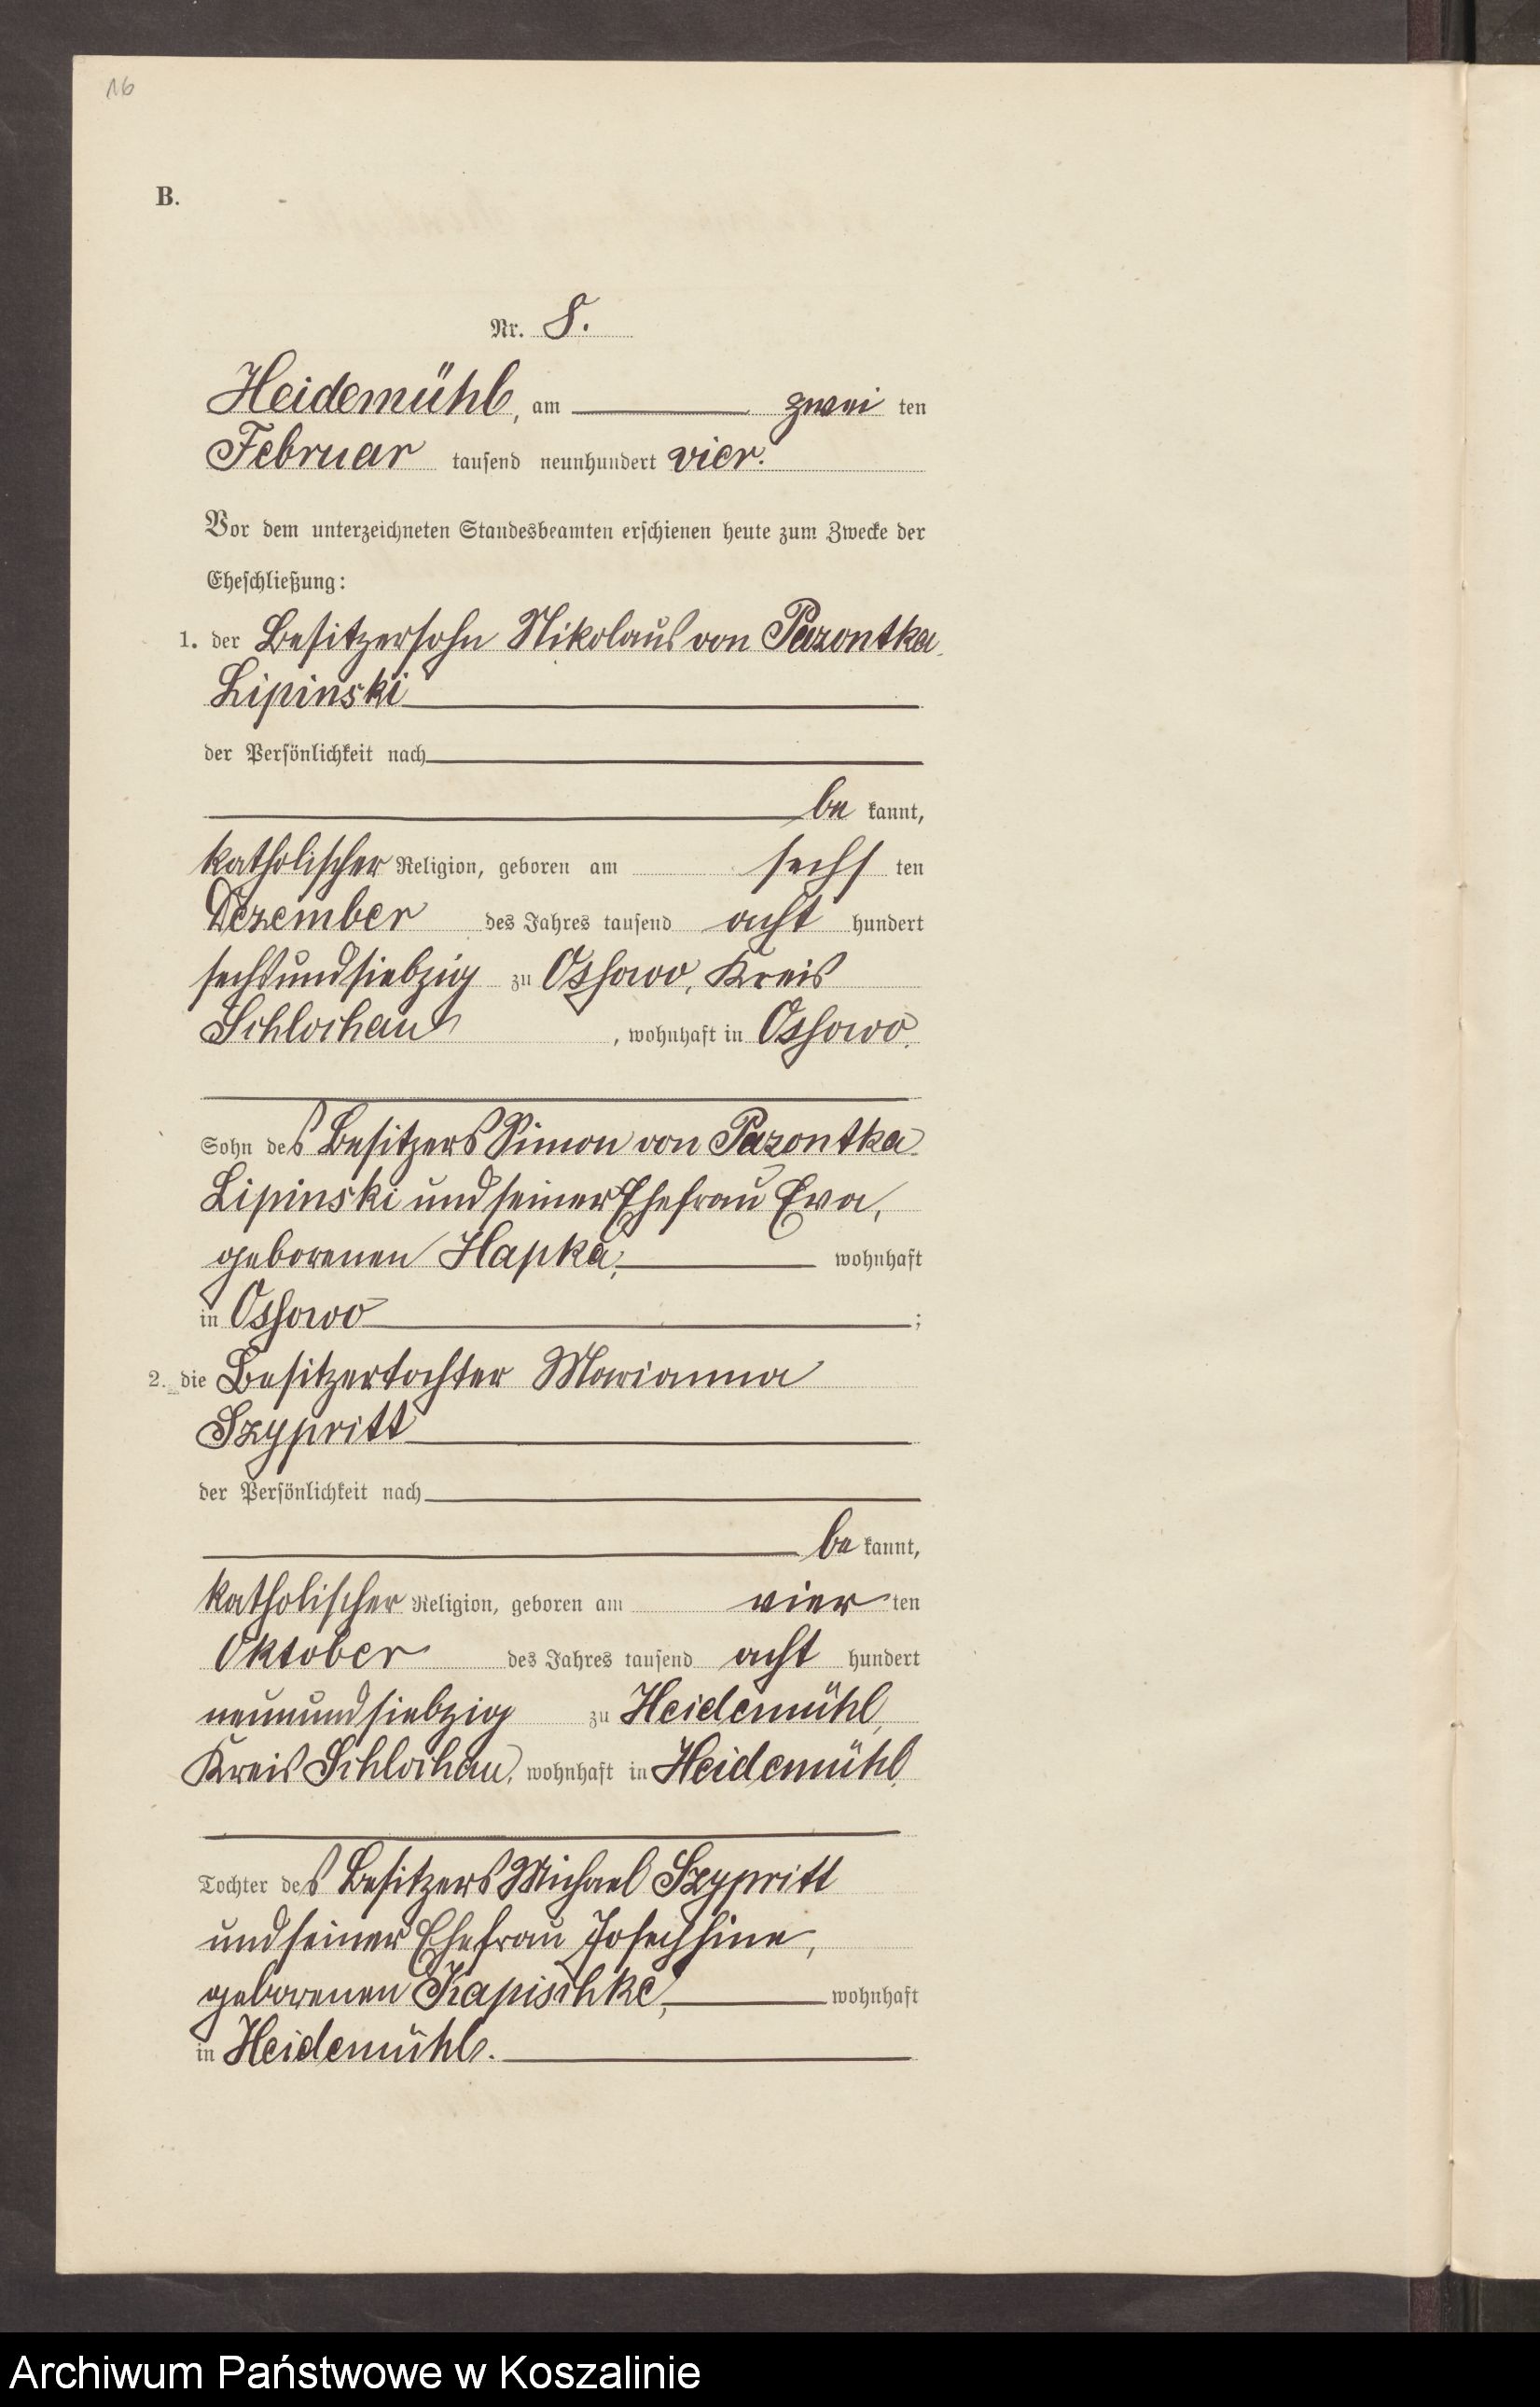 16
B.
Nr. 8.
Heidemühl, am zwei ten
Februar tausend neunhundert vier.
Vor dem unterzeichneten Standesbeamten erschienen heute zum Zwecke der
Eheschließung:
1. der Besitzersohn Nikolaus von Pazontka
Lipinski
der Persönlichkeit nach
be kannt,
katholischer Religion, geboren am sechs ten
Dezember des Jahres tausend acht hundert
sechsundsiebzig zu Ossowo, Kreis
Schlochau, wohnhaft in Ossowo,
Sohn des Besitzers Simon von Pazontka
Lipinski und seiner Ehefrau Eva,
geborenen Hapka, wohnhaft
in Ossowo ;
2. die Besitzertochter Marianna
Szypritt
der Persönlichkeit nach
be kannt,
katholischer Religion, geboren am vier ten
Oktober des Jahres tausend acht hundert
neunundsiebzig zu Heidemühl,
Kreis Schlochau, wohnhaft in Heidemühl,
Tochter des Besitzers Michael Szypritt
und seiner Ehefrau Josephine,
geborenen Kapischke, wohnhaft
in Heidemühl.
Archiwum Państwowe w Koszalinie